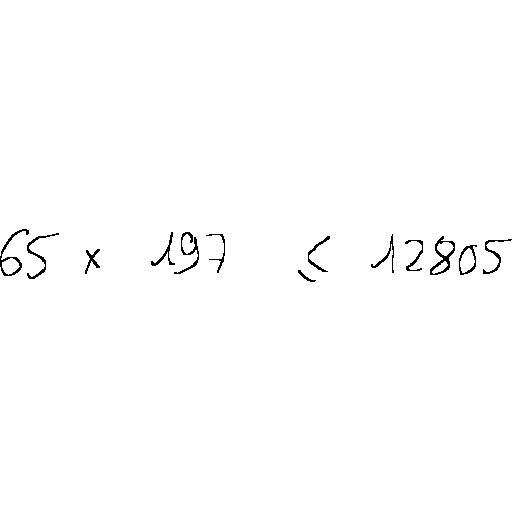 65 × 197 ≤ 12805